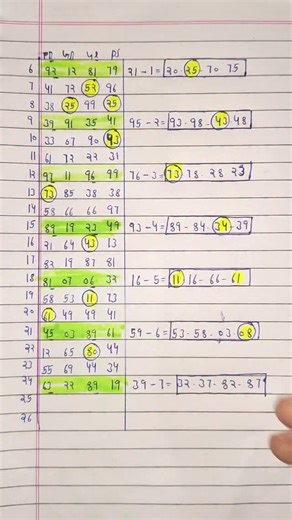 FD GD GL DS
6 92 12 81 79 21-1= 20.25.70 75
7 41 72 52 96
8 38 25 99 25
9 39 91 35 41 95-2= 93.98.43.48
10 33 07 90 93
11 61 72 22 31
12 97 11 96 99 76-3= 73 78.28 23
13 73 85 38 38
14 58 66 66 97
15 89 19 23 49 93-4= 89-84.34-39
16 21 64 43 13
17 82 19 87 81
18 81 07 06 32 16-5= 11 16-66-61
19 58 53 11 73
20 61 49 49 41
21 45 03 89 61 59-6= 53.58.03.08
22 12 65 80 44
23 55 69 44 34
24 63 22 89 19 39-7= 32.37-82-87
25
26